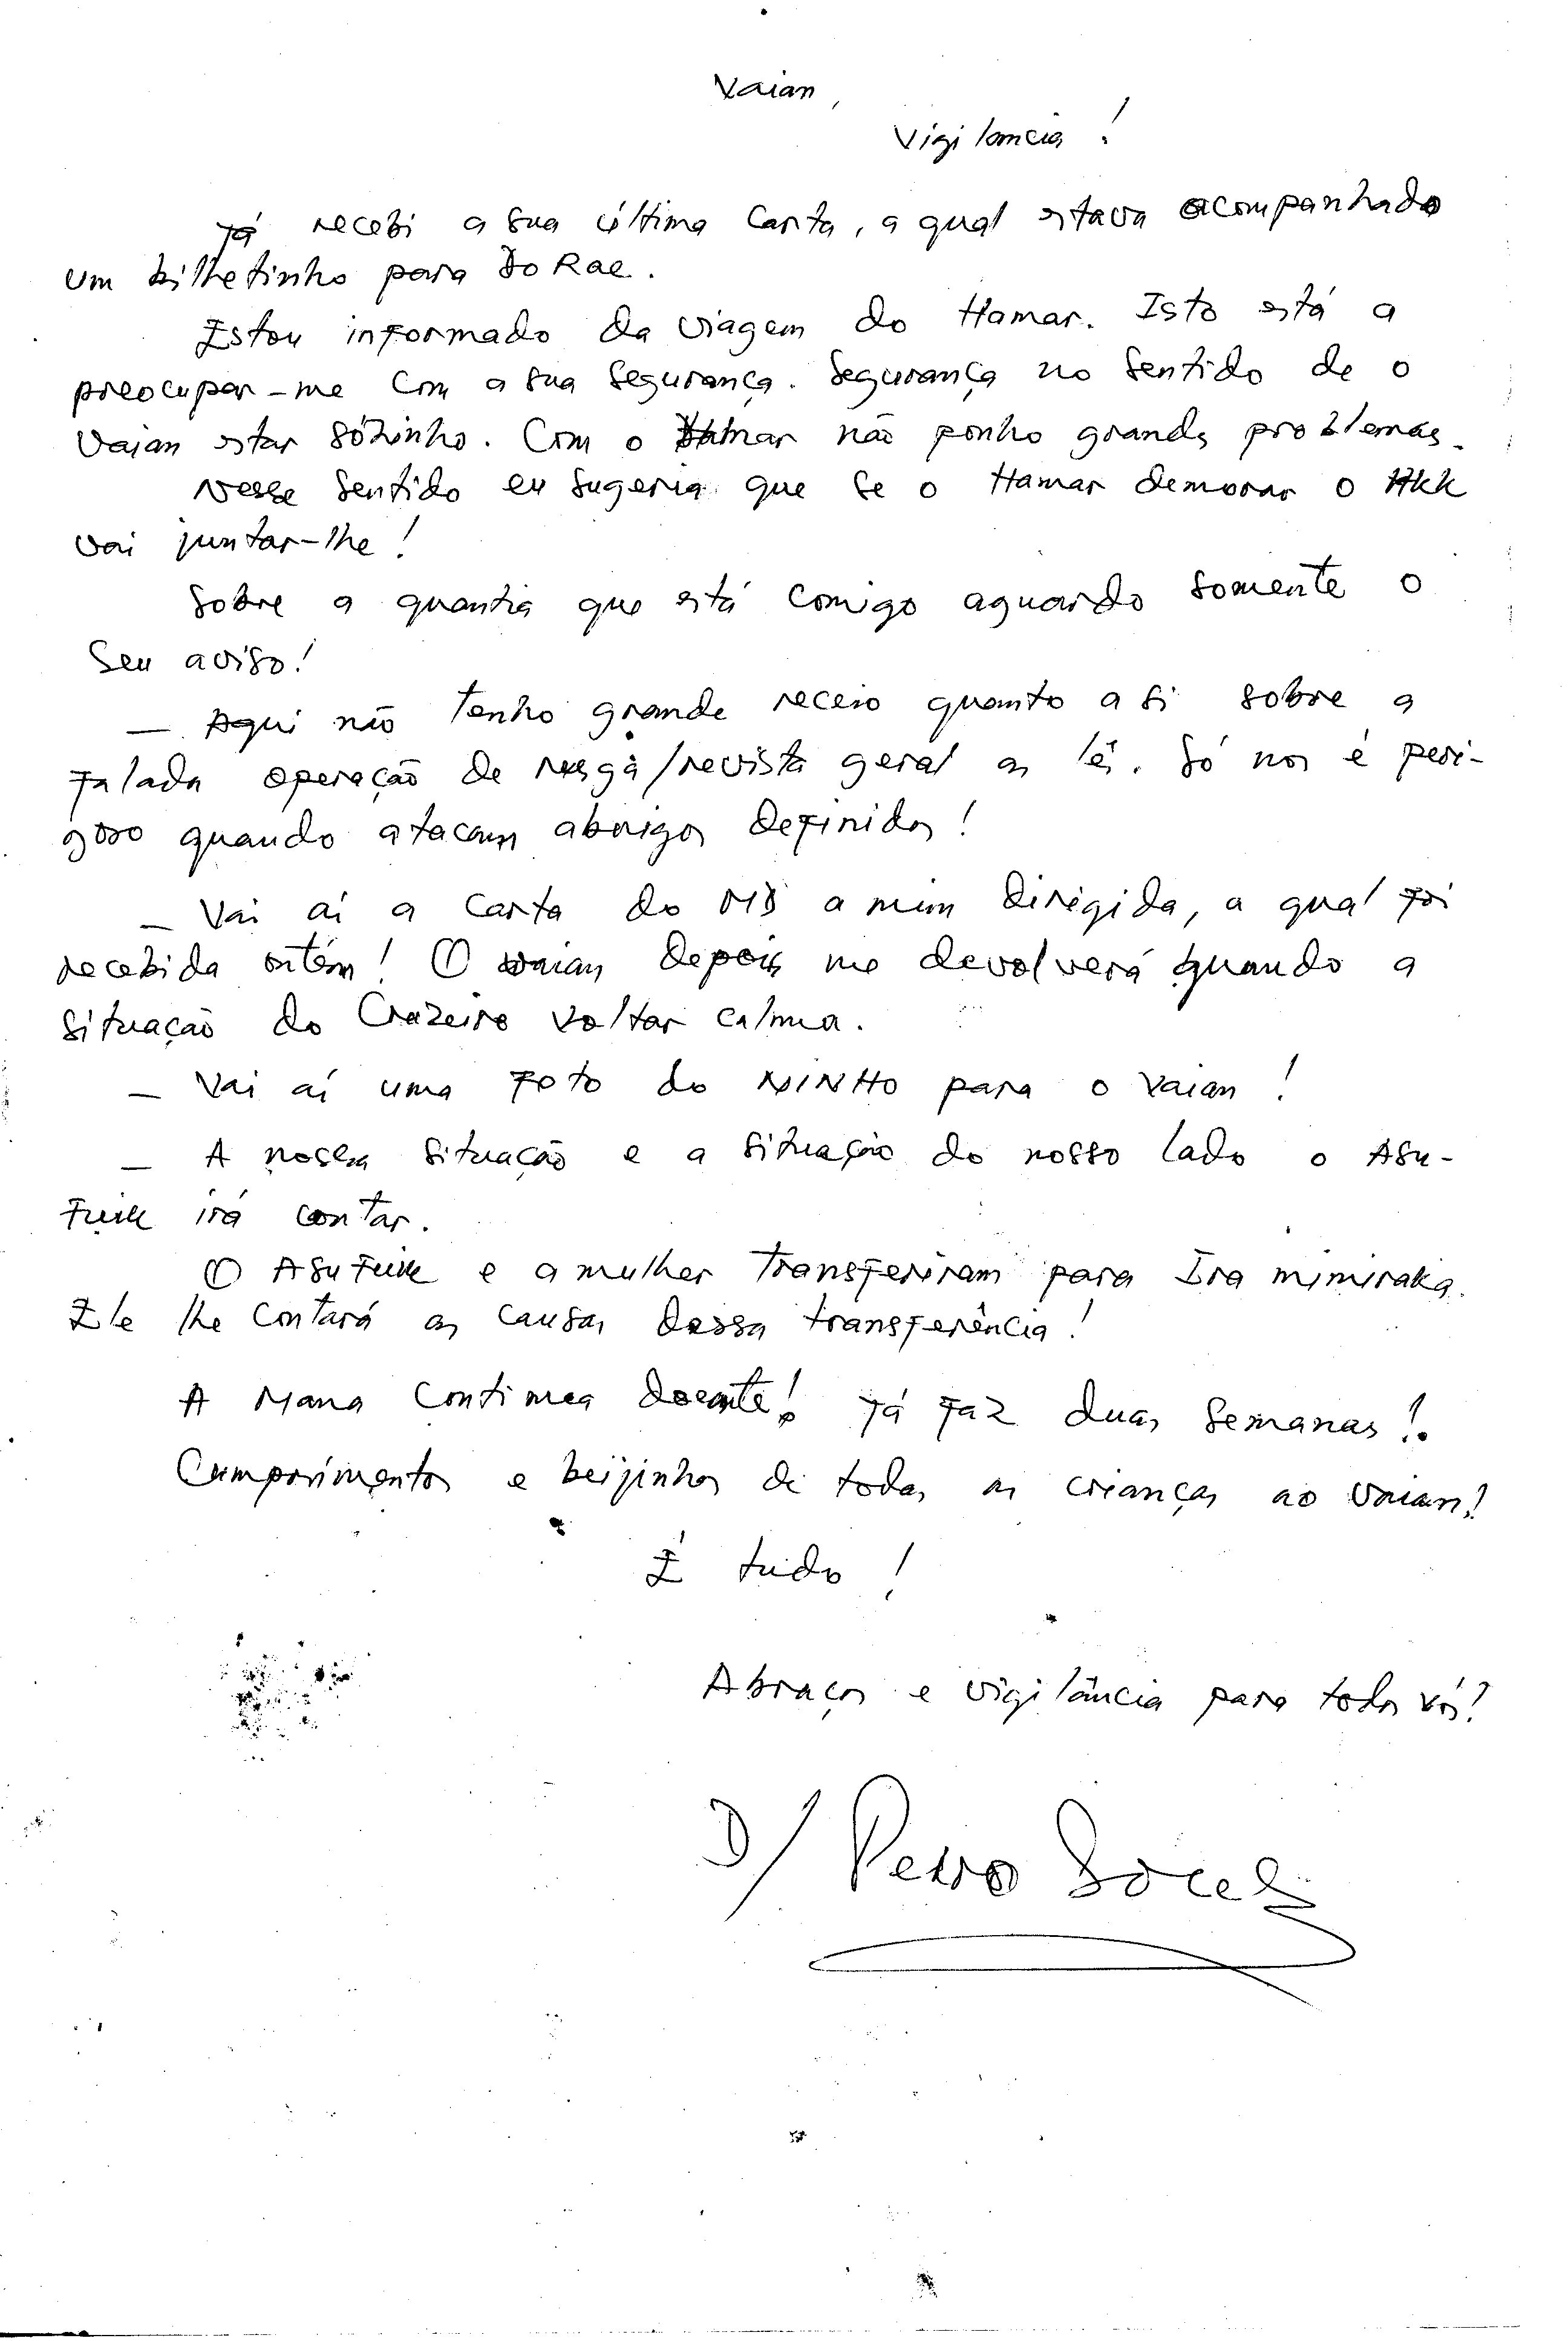 Vaian,
Vigilancia!
Já recebi a sua última carta, a qual estava acompanhado
um bilhetinho para Do Rae.
Estou informado da viagem do Hamar. Isto está a
preocupar-me com a sua segurança. Segurança no sentido de o
Vaian estar sózinho. Com o Hamar não ponho grandes problemas.
Nesse sentido eu sugeria que se o Hamar demorar o Akk
vai juntar-lhe!
Sobre a quantia que está comigo aguardo somente o
seu aviso!
— Aqui não tenho grande receio quanto a si sobre a
falada operação de rusga/revista geral as. Só nos é peri-
goso quando atacam abrigos definidos!
— Vai aí a carta do a mim dirigida, a qual foi
recebida ontém! O Vaian depois me devolverá quando a
situação do Cruzeiro voltar calma.
— Vai aí uma foto do NINHO para o Vaian!
— A nossa situação e a situação do nosso lado o Asu-
Fuik irá contar.
O Asu Fuik e a mulher transferiram para Ira mimiraka.
Ele lhe contará as causas dessa transferência!
A Mana continua doente! Já faz duas semanas!
Cumprimentos e beijinhos de todas as crianças ao Vaian!
É tudo!
Abraços e vigilância para todos vós!
D/